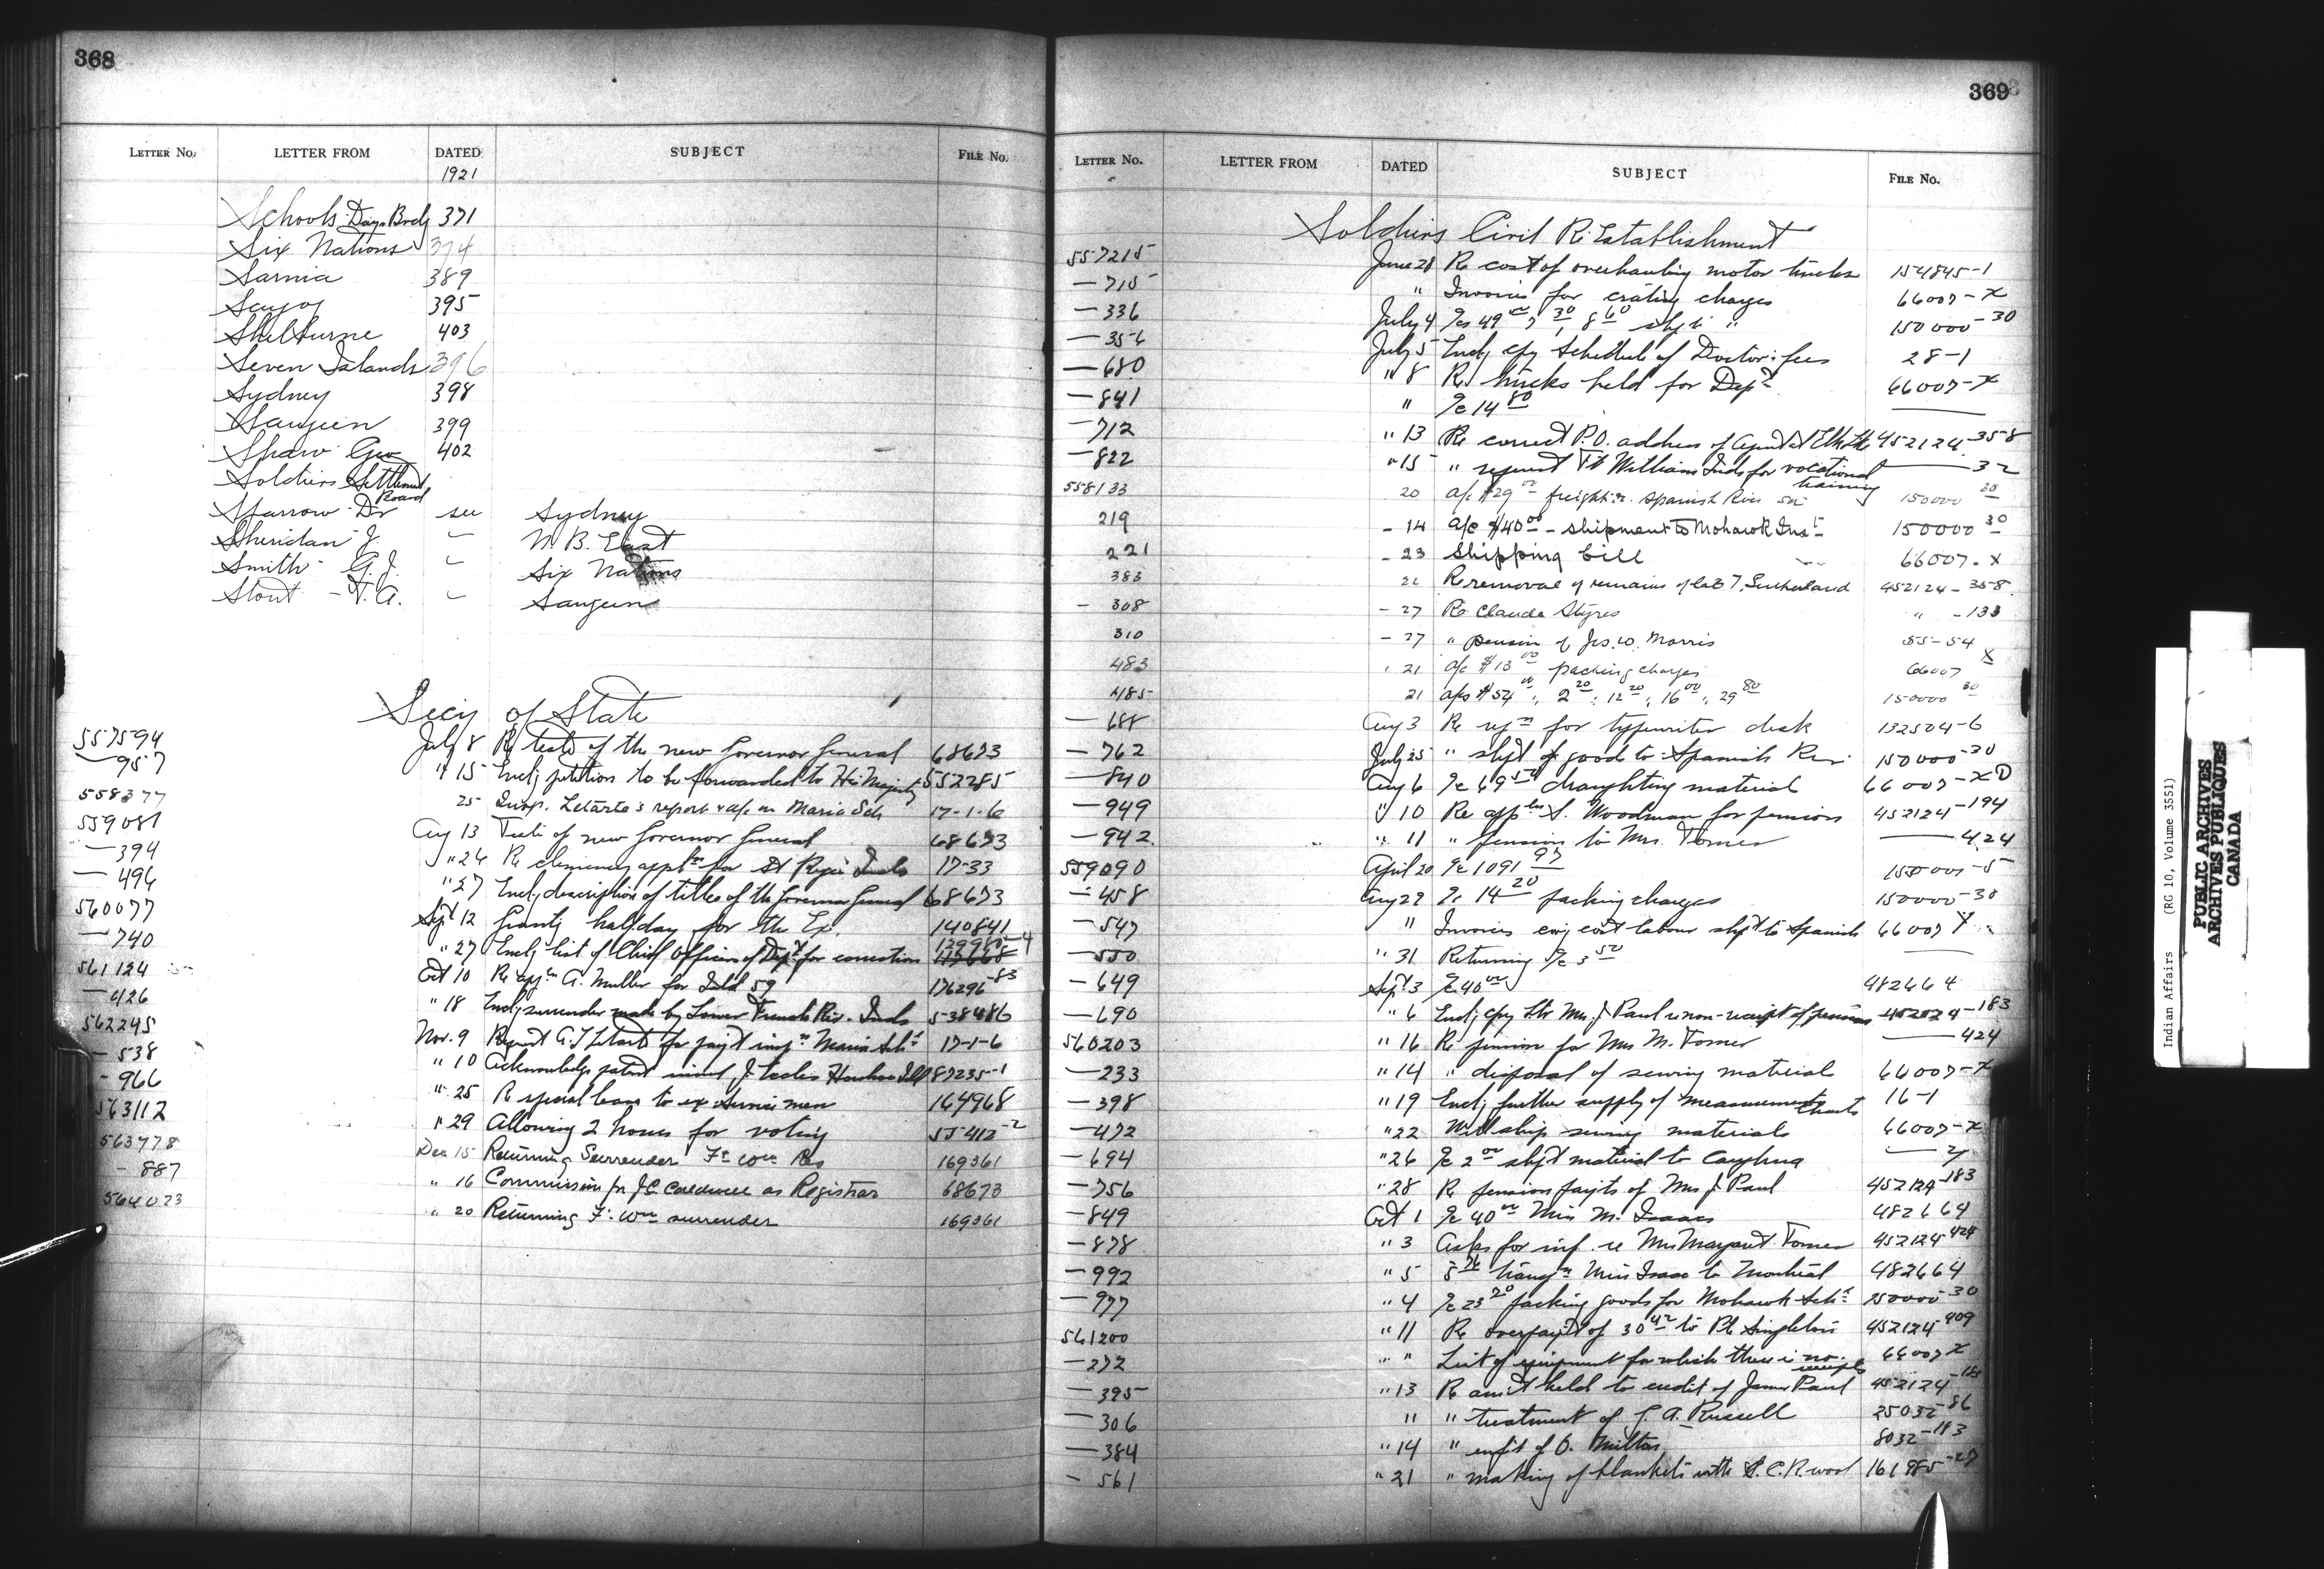 368
LETTER NO. LETTER FROM DATED SUBJECT FILE NO.
1921
Schools Day Brdg 371
Six Nations 374
Sarnia 389
395
Shelburne 403
Seven Islands 396
Sydney 398
Saugeen 399
Shaw Geo 402
Soldiers Settlement Board
Sparrow Dr see Sydney
Sheridan J. " N. B. East
Smith - G. J. " Six Nations
Stout - T. A. " Saugeen
Secy of State
557594 July 8 Re title of the new Governor General 68673
— 957 " 15 Encl; petition to be forwarded to His Majesty 552285
558377 25 Insp. Letarte's report & a/c on Maria Sch 17-1-6
559081 Aug 13 Title of new Governor General 68673
— 394 " 26 Re clemency for St Regis Inds 17-33
— 496 " 27 Encl; description of titles of the Governor General 68673
560077 Sept 12 Grantg holiday for the Ex. 140841
— 740 " 27 Encl; list of Chief Officers of Dept for correction
561124 Oct 10 Re A. Muller for Isld 59 176296-83
— 426 " 18 Encl; surrender made by Lower French Riv. Inds 538486
562245 Nov. 9 17-1-6
— 538 " 10 87235-1
- 966 " 25 Re special leave to ex service men 164968
563112 " 29 Allowing 2 hours for voting 55412-2
563778 Dec 15 Returning Surrender Ft Wm Res 169361
- 887 " 16 Commission for J.C. Caldwell as Registrar 68673
564023 " 20 Returning Ft. Wm surrender 169361
369
LETTER NO. LETTER FROM DATED SUBJECT FILE NO.
Soldiers Civil Re Establishment
557215 June 28 Re cost of overhauling motor trucks 154845-1
— 715 " Invoices for crating charges 66007-X
— 336 July 4 150000-30
— 356 July 5 Encl; cpy Schedule of Doctors fees 28-1
— 680 " 8 Re trucks held for Dept 66007-X
— 841 " a/c 14 80 —
— 712 " 13 Re correct P.O. address of Agent at 452124-358
— 822 " 15 " request Ft William Inds for vocational training — 32
558133 20 a/c $29 00 freight Spanish River 150000 30
219 - 14 a/c $40 00 - shipment to Mohawk Inst 150000 30
221 - 23 Shipping bill 66007-X
383 22 Re removal of remains of late T. Sutherland 452124-358
- 308 - 27 Re Claude Styres " -133
310 - 27 " pension of Jos. W. Morris 55-54
483 " 21 a/c $13 00 packing charges 66007 X
485 21 a/cs $54 00, 2 20, 12 20, 16 00, 29 80 150000 30
— 688 Aug 3 Re for typewriter desk 132504-6
— 762 July 25 " shpt of good to Spanish Riv. 150000-30
— 840 Aug 6 draughting material 66007-X
— 949 " 10 Re S. Woodman for pension 452124-194
— 942 " 11 " pension to Mrs. — 424
559090 April 20 a/c 1091 97 150001-5
— 458 Aug 29 a/c 14 20 packing charges 150000-30
— 547 " Invoices cost labour shpt to Spanish 66007
— 550 " 31 Returning a/c 3 50 —
— 649 Sept 3 a/c 40 00 482664
— 690 " 6 Encl; cpy ltr Mrs. J Paul re non-receipt of pension 452124-183
560203 " 16 Re pension for Mrs M. — 424
— 233 " 14 " disposal of sewing material 66007-X
— 398 " 19 Encl; further supply of measurements charts 16-1
— 472 " 22 Will ship sewing materials 66007-X
— 694 " 26 a/c 2 00 shpt material to Caughna
— 756 " 28 Re pension payts of Mrs J. Paul 452124-183
— 849 Oct 1 a/c 40 00 Miss M. Isaacs 482664
— 878 " 3 Asks for inf. re Mrs Margaret 452124 424
— 992 " 5 Miss Isaac to Montreal 482664
— 977 " 4 a/c 23 20 packing goods for Mohawk Sch 150000-30
561200 " 11 Re overpayt of 30 42 to Pte Singleton 452124 409
— 272 " " List of equipment for which there is no receipts 66007 X
— 395 " 13 Re amt held to credit of James Paul 452124
— 306 " " treatment of A. Russell 25032-86
— 384 " 14 8032-113
- 561 " 21 " making of blankets with S.C.R. wool 161985-27
Indian Affairs (RG 10, Volume 3551)
PUBLIC ARCHIVES
ARCHIVES PUBLIQUES
CANADA